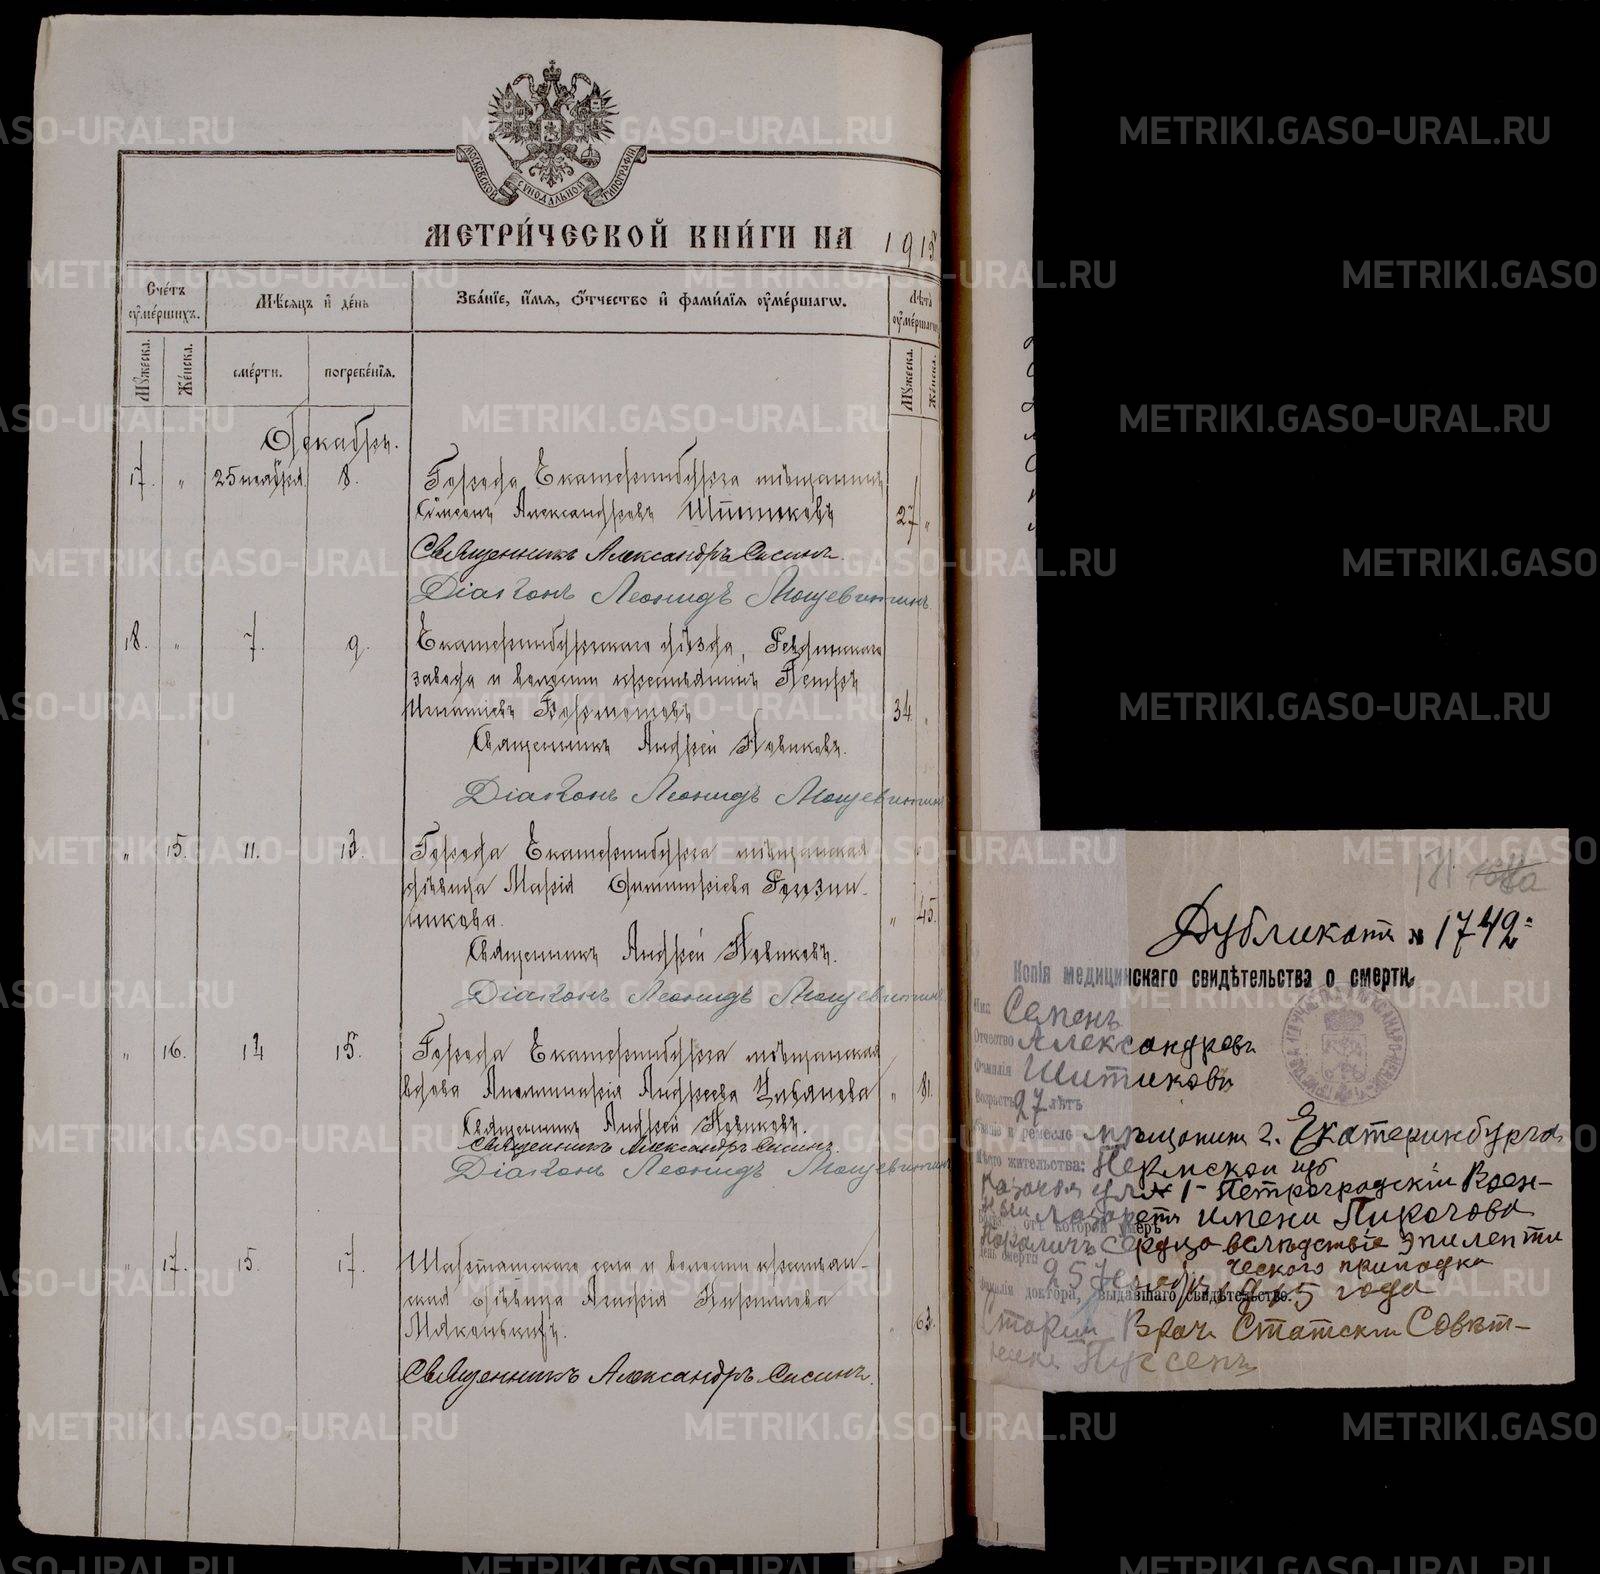 МОСКОВСКОЙ СѴНОДАЛЬНОЙ ТИПОГРАФІИ
МЕТРИ́ЧЕСКОЙ КНИ́ГИ НА 1915
Сче́тъ ᲂу҆ме́ршихъ.
Мѣ́сяцъ и҆ де́нь
Зва́нїе, и҆́мя, ѻ҆́тчество и҆ фами́лїя ᲂу҆ме́ршагѡ.
Лѣ́та ᲂу҆ме́ршагѡ
Мꙋ́жеска. Же́нска. сме́рти. погребе́нїя. Мꙋ́жеска. Же́нска.
Декабрь.
17. " 25 ноября. 8. Города Екатеринбурга мѣщанинъ
Сѵмеонъ Александровъ Шитиковъ 27 "
Священникъ Александръ Сисинъ.
Діаконъ Леонидъ Мощевитинъ.
18. " 7. 9. Екатеринбургскаго уѣзда, Ревдинскаго
завода и волости крестьянинъ Петръ
Игнатіевъ 34 "
Священникъ Андрей Новиковъ.
Діаконъ Леонидъ Мощевитинъ
" 15. 11. 13. Города Екатеринбурга мѣщанская
дѣвица Марія Димитріева Рогозин-
никова. " 45.
Священникъ Андрей Новиковъ.
Діаконъ Леонидъ Мощевитинъ
" 16. 14 15. Города Екатеринбурга мѣщанская
вдова Аполлинарія Андреева " 81.
Священникъ Андрей Новиковъ.
Священникъ Александръ Сисинъ.
Діаконъ Леонидъ Мощевитинъ
" 17. 15. 17. Шарташскаго села и волости крестьян-
ская дѣвица Кириллова
" 63.
Священникъ Александръ Сисинъ.
Дубликатъ № 1742
Копія медицинскаго свидѣтельства о смерти
Имя Семенъ
Отчество Александровъ
Фамилія Шитиковъ
Возрастъ 27 лѣтъ
Званіе и ремесло мѣщанинъ г. Екатеринбурга
Мѣсто жительства: Пермской губ
1й Петроградскій Воен-
ный лазаретъ имени Пирогова
отъ которой умеръ
Параличъ сердца вслѣдствіе эпилепти
ческаго припадка
День смерти 25 Ноября 1915 года
Фамилія доктора, выдавшаго свидѣтельство.
Старш Врачъ Статскій Совѣт-
никъ
METRIKI.GASO-URAL.RU